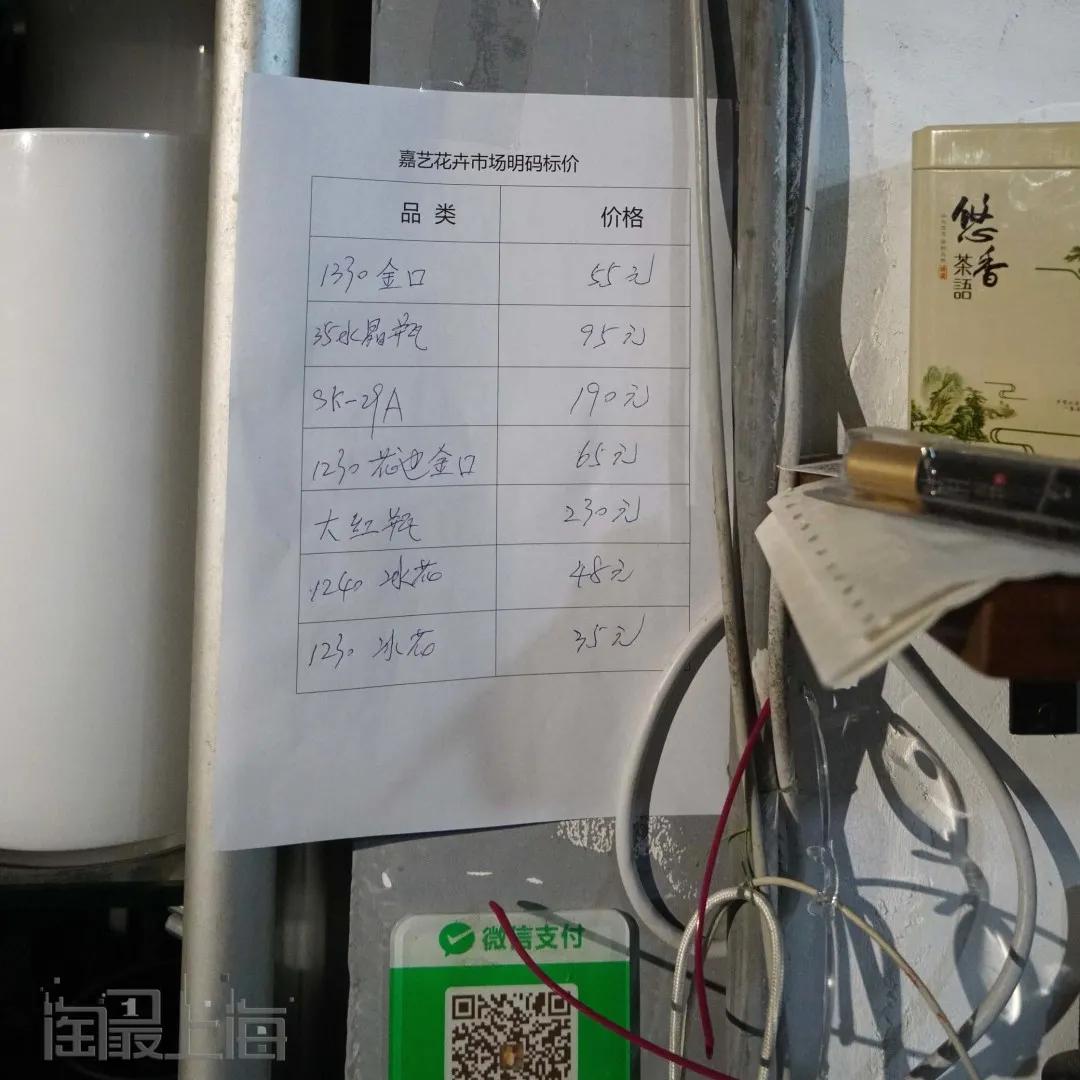 嘉艺花卉市场明码标价
品 类 价格
1330 金口 55元
35水晶瓶 95元
SK-29A 190元
1230 花边金口 65元
大红瓶 230元
1240 冰花 48元
1230 冰花 35元
悠香
茶語
微信支付
淘最上海